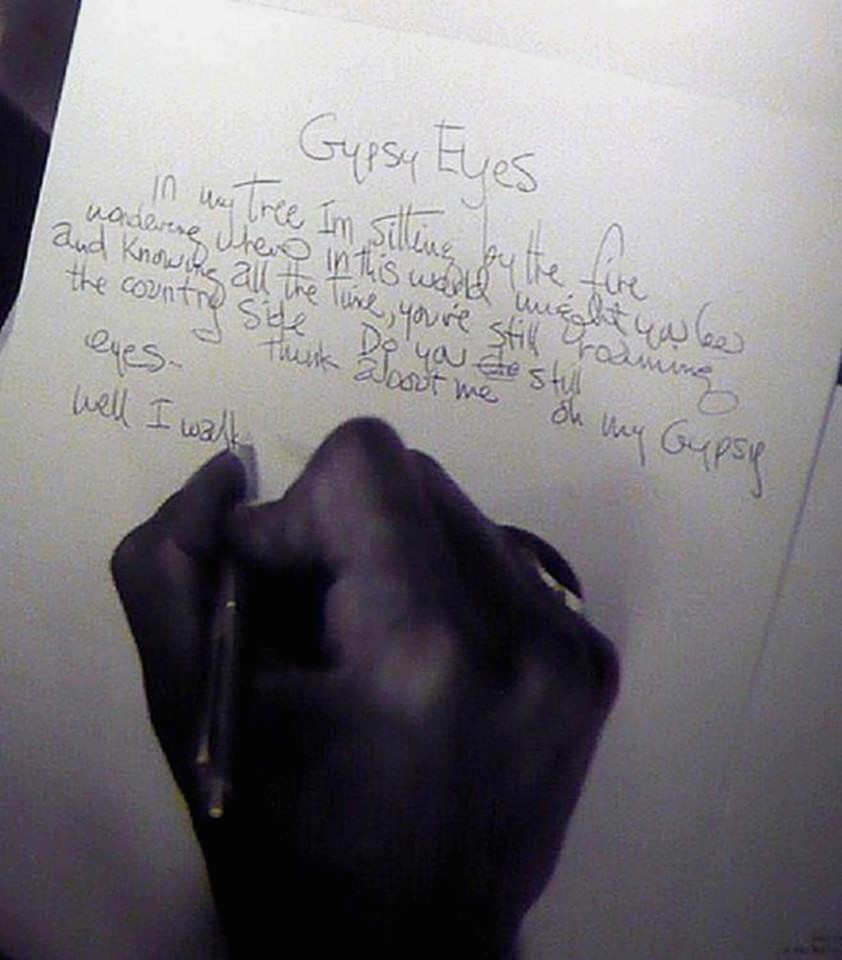 Gypsy Eyes
In my Tree Im sitting by the fire
wondering where in this world might you bee
and knowing all the time, you're still roaming
the country side Do you still
think about me oh my Gypsy
eyes-
well I walk